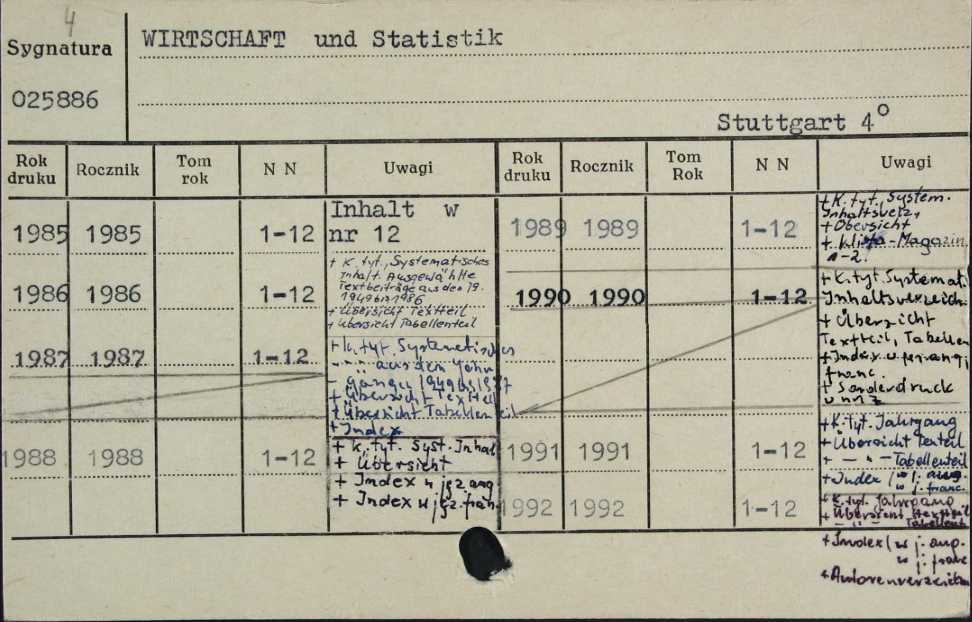 4
Sygnatura
WIRTSCHAFT und Statistik
025886
Stuttgart 4°
Rok druku Rocznik Tom rok N N Uwagi Rok druku Rocznik Tom Rok N N Uwagi
1985 1985 1-12 Inhalt w
nr 12
1986 1986 1-12 + K. tyt., Systematisches
Inhalt. Ausgewählte
Textbeiträge aus den
1949 bis 1986
+ Übersicht Textteil
+ Übersicht Tabellenteil
1987 1987 1-12 + K. tyt. Systematisches
aus den Jahr
gängen 1949 bis 1987
+ Übersicht Textteil
+ Übersicht Tabellenteil
+ Index
1988 1988 1-12 + K. tyt. Syst. Inhal
+ Übersicht
+ Index w jęz ang
+ Index w jęz. fran
1989 1989 1-12 + K. tyt. System.
Inhaltsverz,
+ Übersicht
+ Magazin
1-2.
1990 1990 1-12 + K. tyt. Systemat.
Inhaltsverzeich.
+ Übersicht
Textteil, Tabellen
+ Index w j. ang i
franc.
+ Sonderdruck
1991 1991 1-12 + K. tyt. Jahrgang
+ Übersicht Textteil
+ — „ — Tabellenteil
+ Index / w j. ang.
w j. franc.
1992 1992 1-12 + K. tyt. Jahrgang
+ Übersicht Textteil
— „ — Tabellent
+ Index / w j. ang.
w j. franc
+ Autorenverzeichn